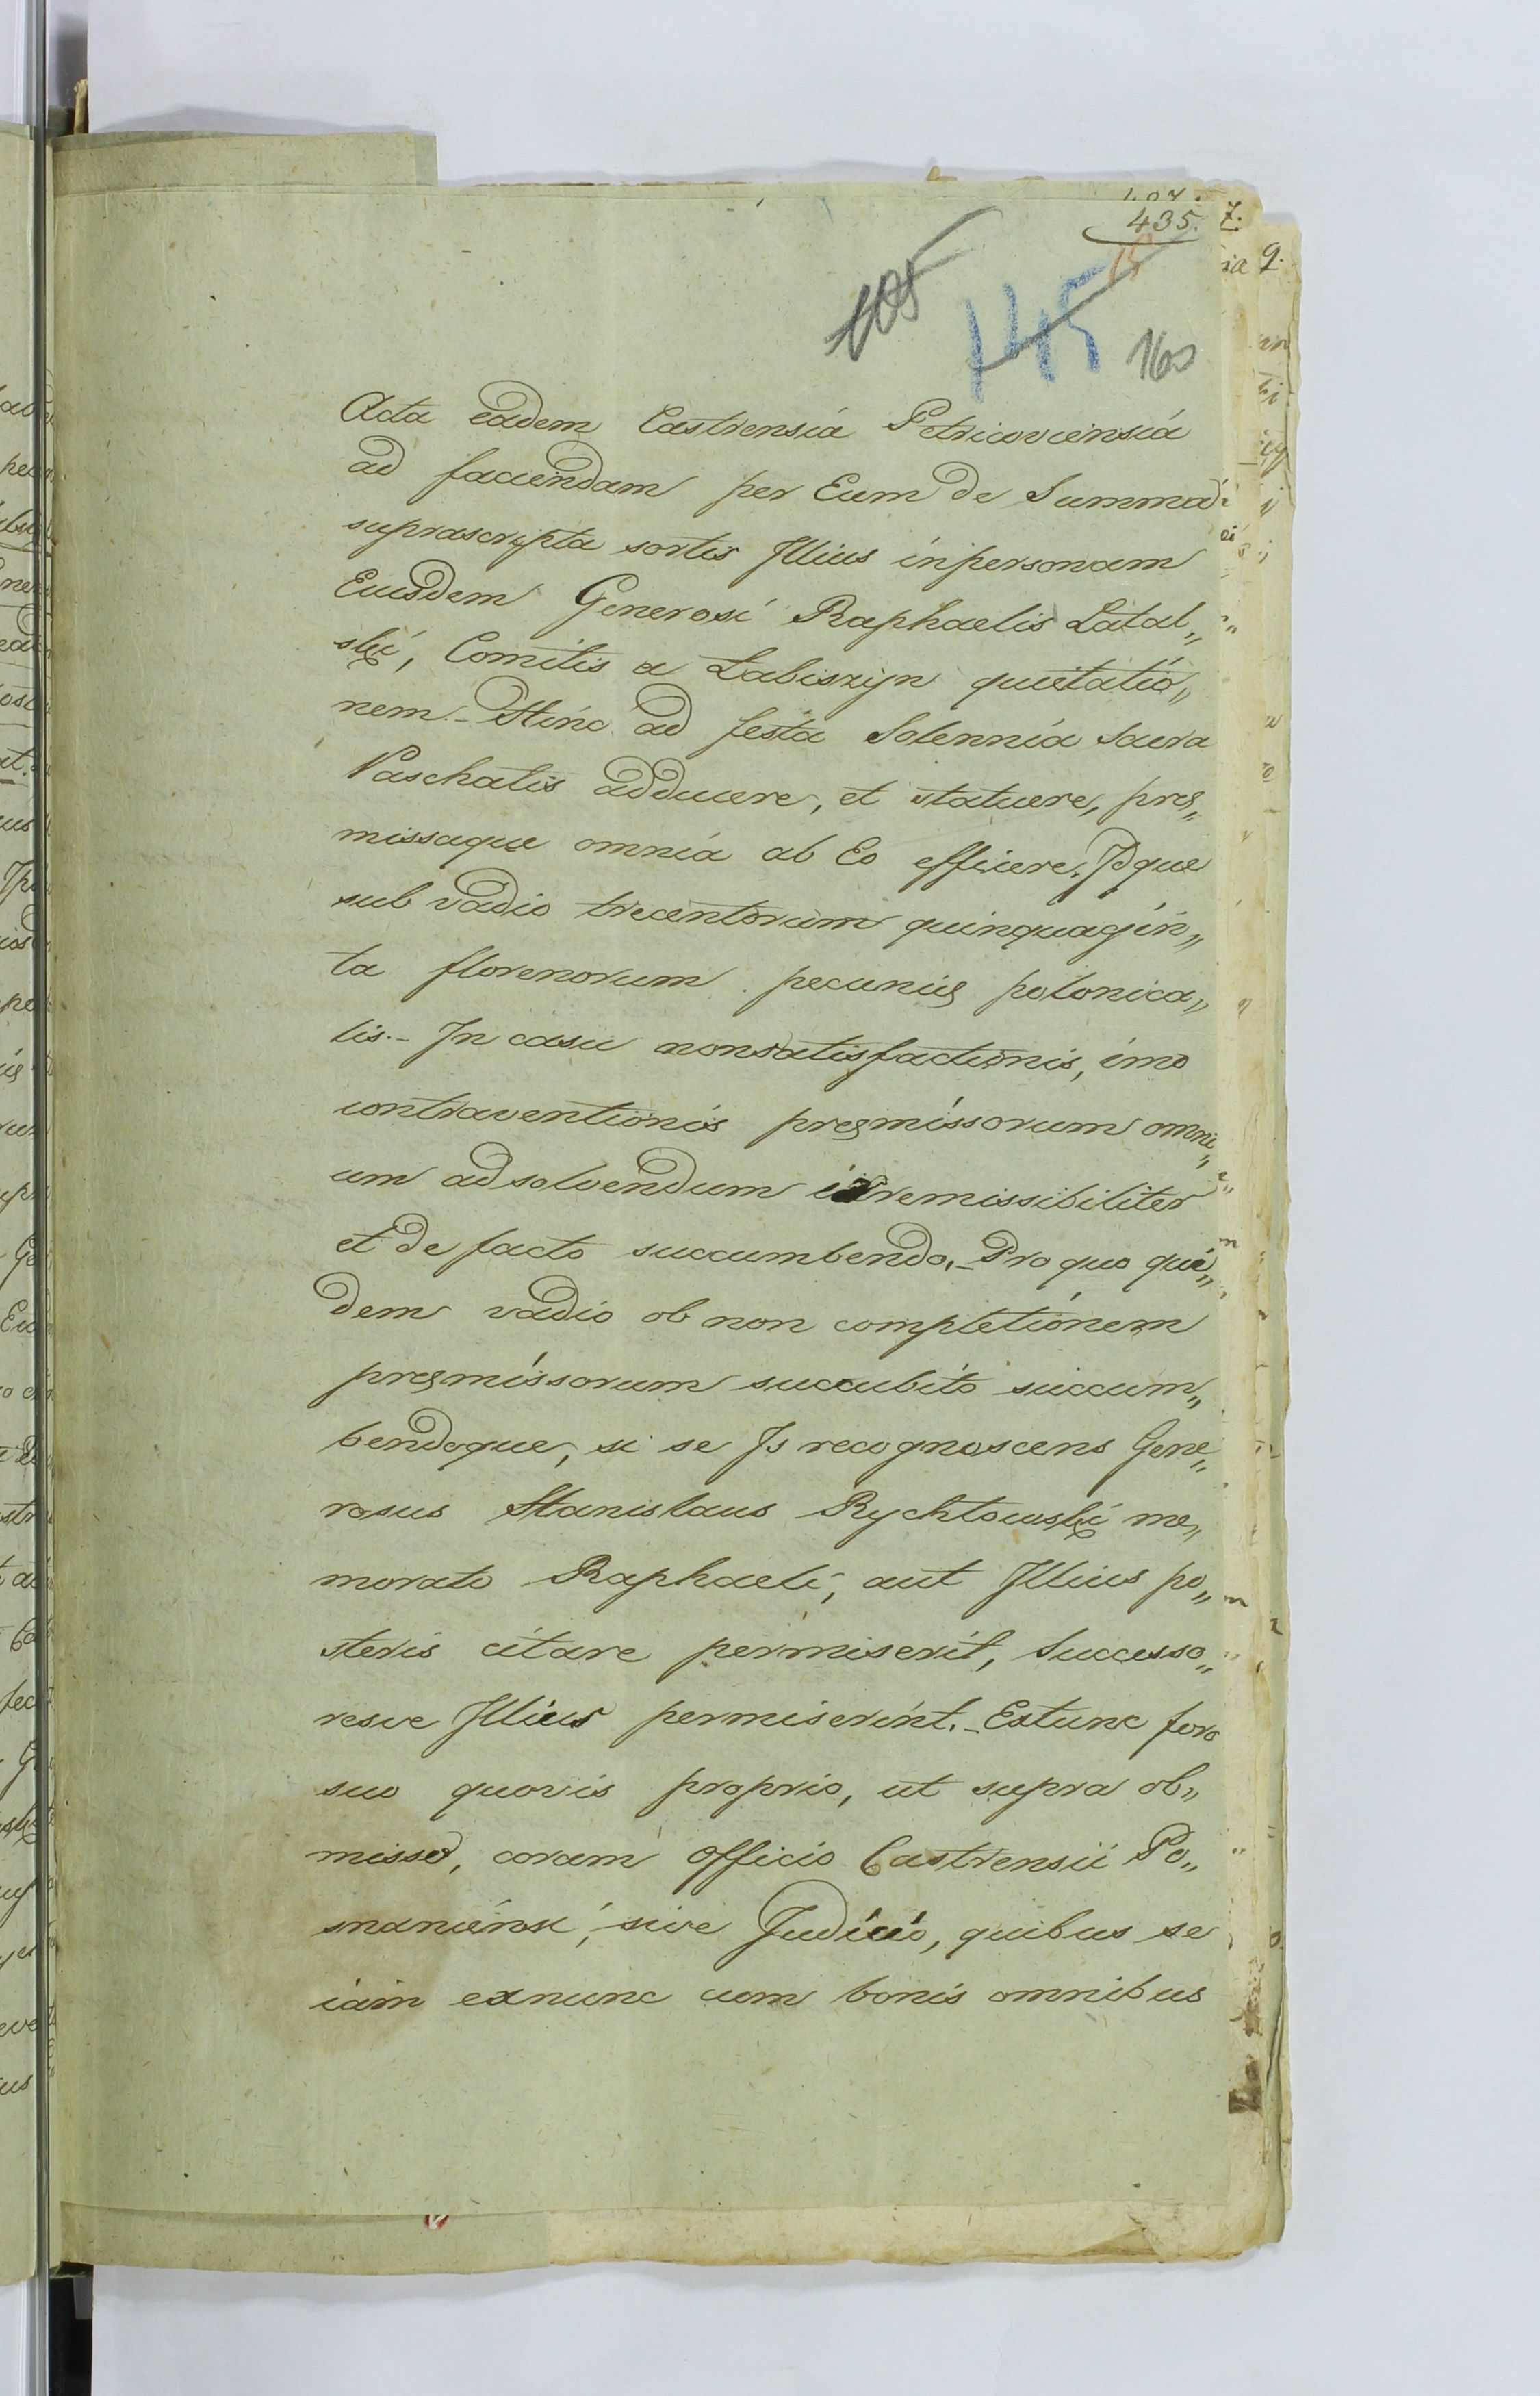 435.
105
145
15
160
Acta eadem Castrensia Petricoviensia
ad faciendam per Eum de Summa
suprascripta sortis Illius inpersonam
Eiusdem Generosi Raphaelis Latal„
ski, Comitis a Labiszyn quietatio„
nem. – Hinc ad festa Solennia Sacra
Paschalis adducere, et statuere, prę„
missaque omnia ab Eo efficere. Idque
sub vadio trecentorum quinquagin„
ta florenorum pecunię polonica„
lis. – In casu nonsatisfactionis, imo
contraventionis pręmissorum omni„
um adsolvendum irremissibiliter
et de facto succumbendo. – Pro quo qui„
dem vadio ob non completionem
pręmissorum succubito succum„
bendoque, si se Is recognoscens Gene„
rosus Stanislaus Rychłowski me„
morato Raphaeli, aut Illius po„
steris citare permiserit, Successo„
resve Illius permiserint. – Extunc foro
suo quovis proprio, ut supra ob„
misso, coram Officio Castrensii Po„
snaniensi, sive Judicio, quibus se
iam exnunc cum bonis omnibus